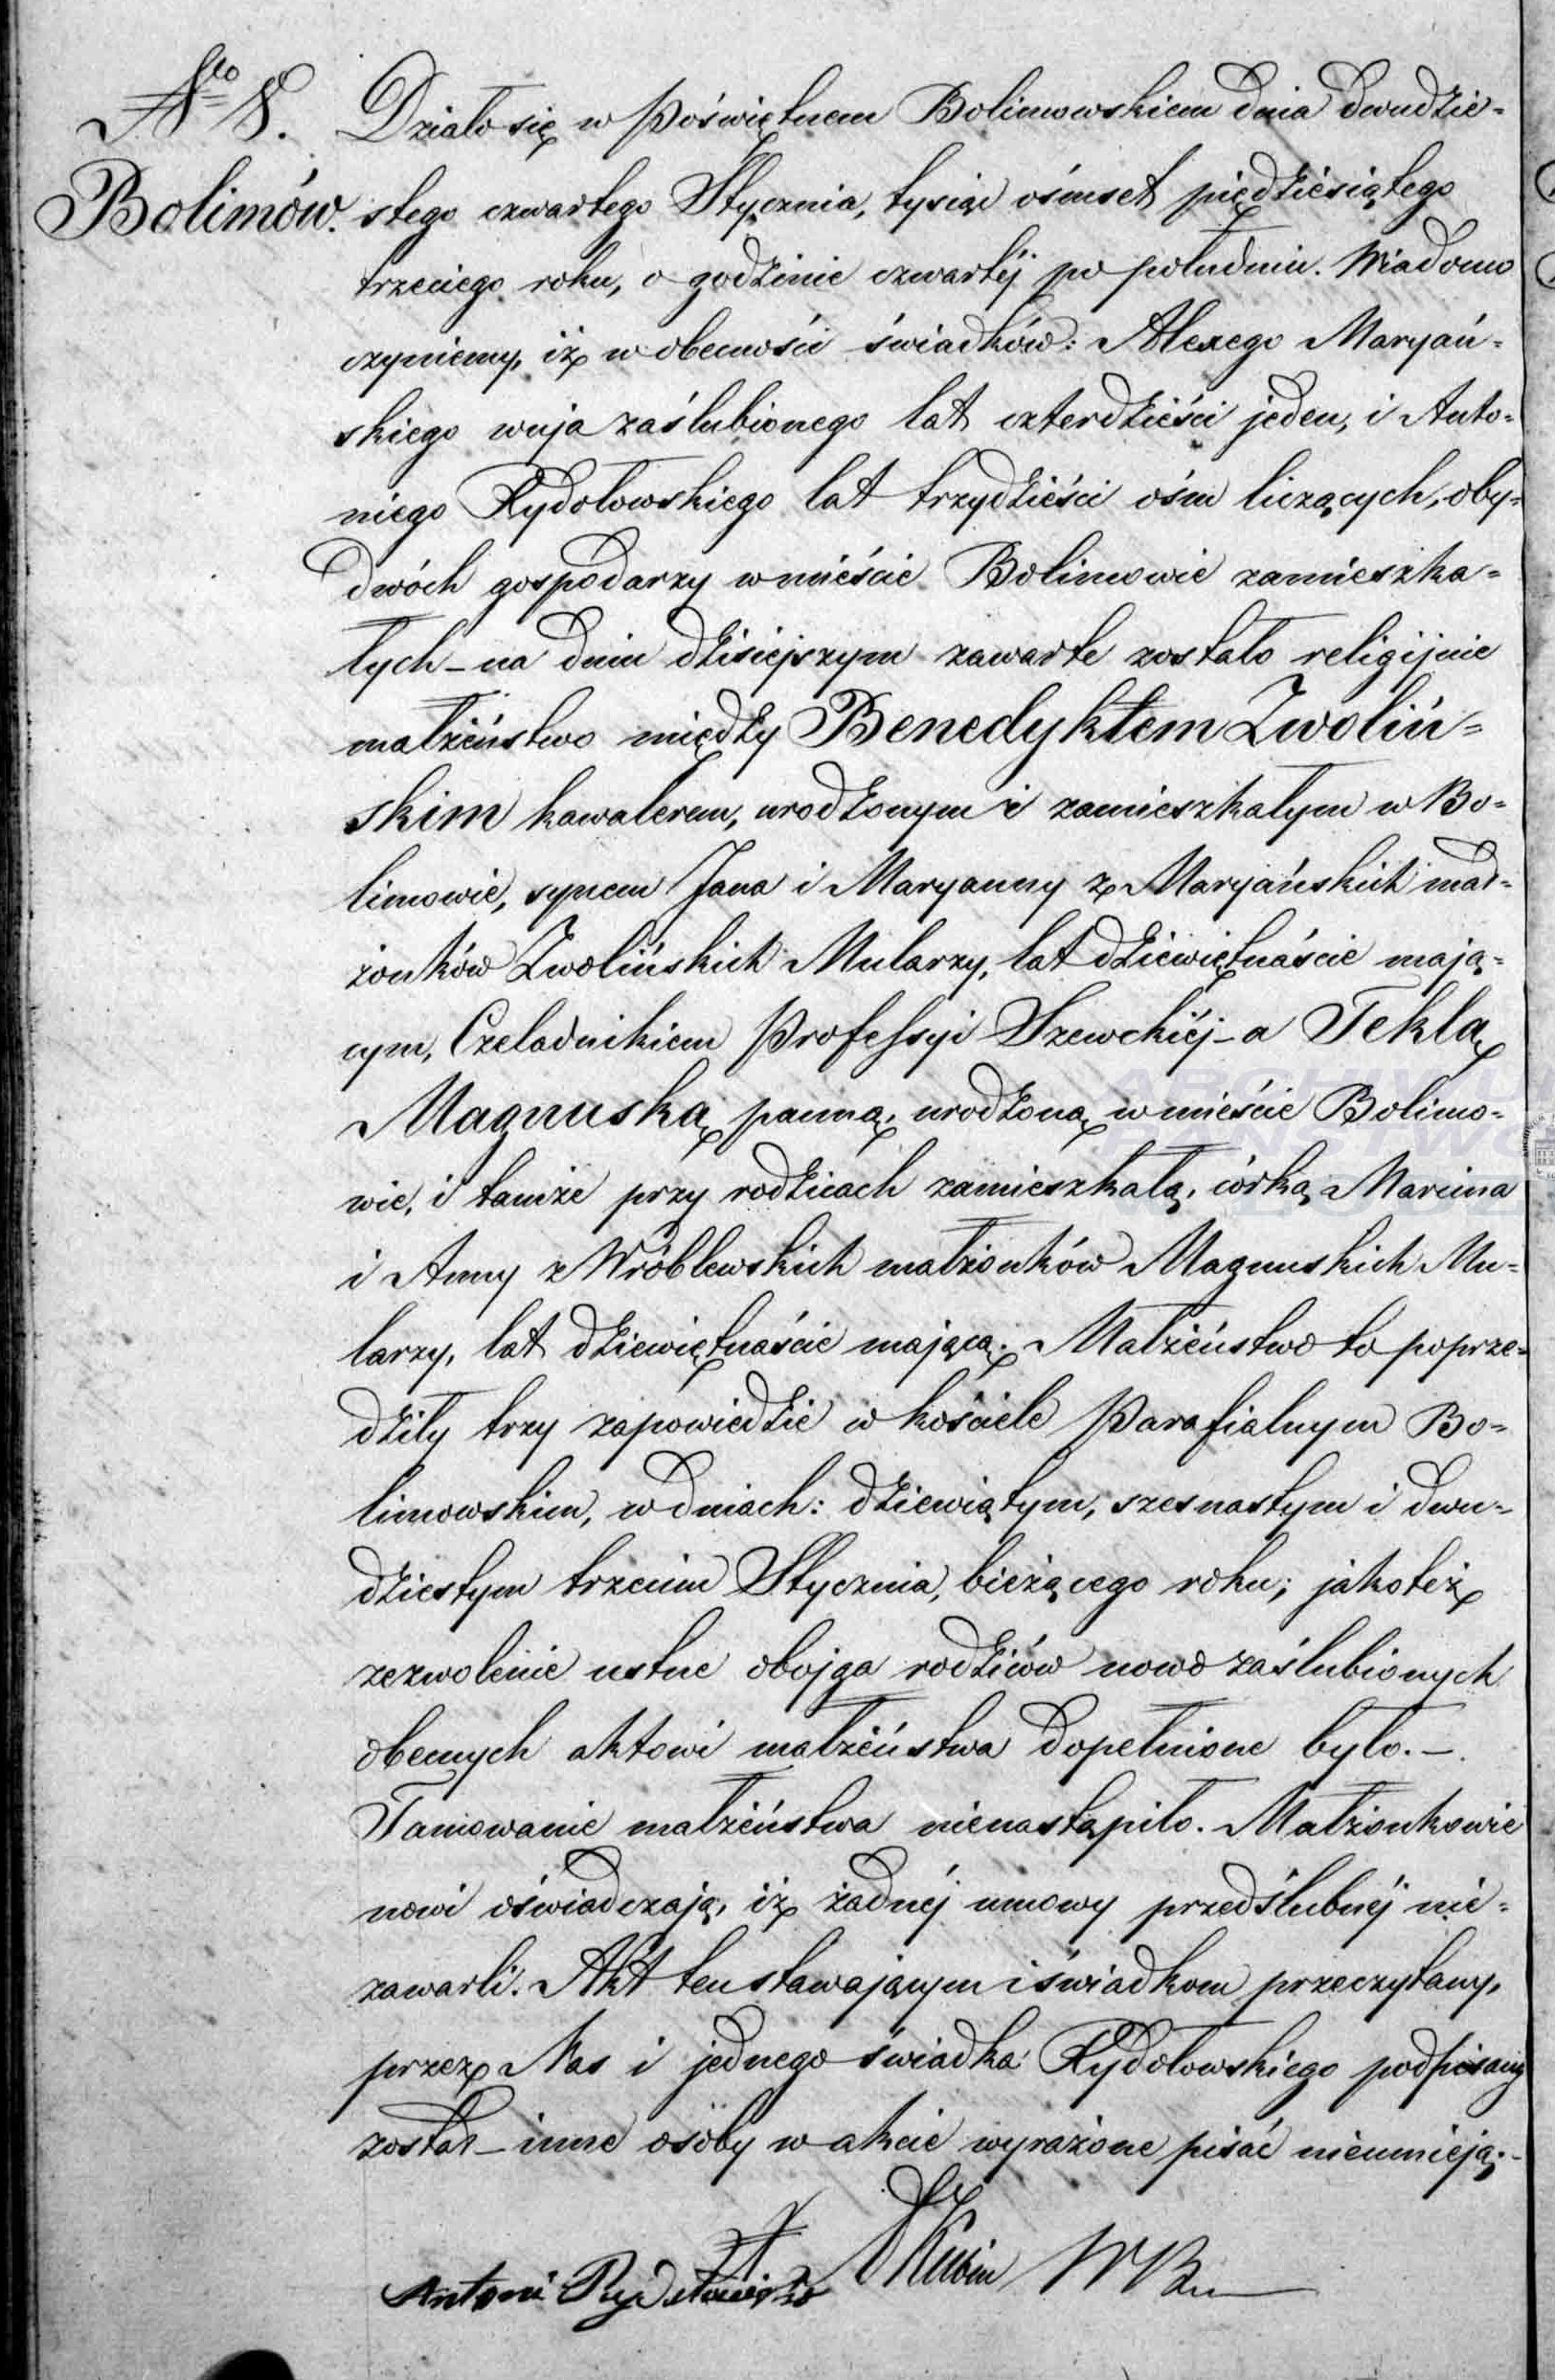 Nro 8.
Bolimów.
Działo się w Poświętnem Bolimowskiem dnia dwudzie=
stego czwartego Stycznia, tysiąc ośmset pięćdziesiątego
trzeciego roku, o godzinie czwartéj po południu. Wiadomo
czyniemy, iż w obecności świadków: Alexego Maryań=
skiego wuja zaślubionego lat czterdzieści jeden, i Anto=
niego Rydołowskiego lat trzydzieści ośm liczących, oby=
dwóch gospodarzy w mieście Bolimowie zamieszka=
łych – na dniu dzisiejszym zawarte zostało religijnie
małżeństwo między Benedyktem Zwoliń=
skim kawalerem, urodzonym i zamieszkałym w Bo=
limowie, synem Jana i Maryanny z Maryańskich mał=
żonków Zwolińskich Mularzy, lat dziewiętnaście mają=
cym, Czeladnikiem Professyi Szewckiéj – a Teklą
Magnuską panną, urodzoną w mieście Bolimo=
wie, i tamże przy rodzicach zamieszkałą, córką Marcina
i Anny z Wróblewskich małżonków Magnuskich Mu=
larzy, lat dziewiętnaście mającą. Małżeństwo to poprze=
dziły trzy zapowiedzie w kościele Parafialnym Bo=
limowskim, w dniach: dziewiątym, szesnastym i dwu=
dziestym trzecim Stycznia, bieżącego roku; jakoteż
zezwolenie ustne obojga rodziców nowo zaślubionych
obecnych aktowi małżeństwa dopełnione było. –
Tamowanie małżeństwa nienastąpiło. Małżonkowie
nowi oświadczają, iż żadnéj umowy przedślubnéj nie=
zawarli. Akt ten stawającym i świadkom przeczytany,
przez Nas i jednego świadka Rydołowskiego podpisany
został – inne osoby w akcie wyrażone pisać nieumieją. –
Antoni